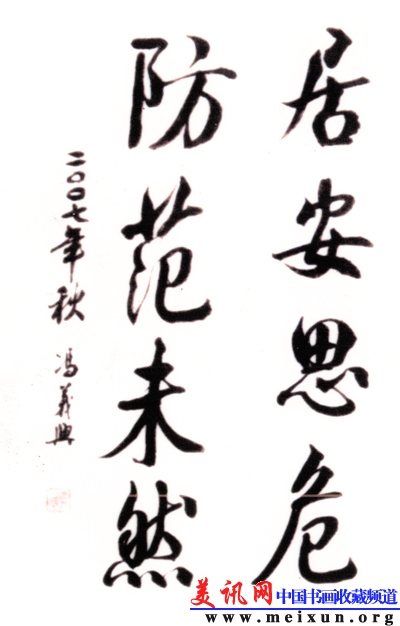 居安思危
防范未然
二〇〇七年秋 冯義興
美讯网 中国书画收藏频道
www.meixun.org